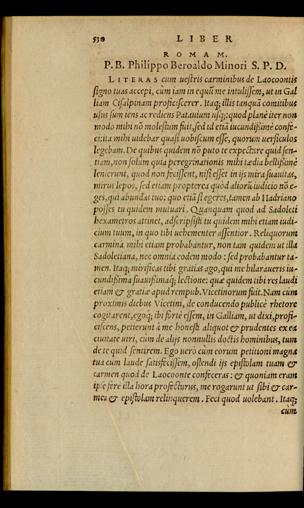 530 LIBER
ROMAM.
P. B. Philippo Beroaldo Minori S. P. D.
LITERAS cum uestris carminibus de Laocoontis
signo tuas accepi, cùm iam in equũ me intulissem, ut in Gal
liam Cisalpinam proficiscerer. Itaq; illis tanquã comitibus
usus sum tens ac rediens Patauium usq;: quod planè iter non
modo mihi nõ molestum fuit, sed id etiã iucundissimè confe-
ci: ita mihi uidebar quasi uobiscum esse, quorum uersiculos
legebam. De quibus quidem nõ puto te expectare quid sen-
tiam, non solùm quia peregrinationis mihi tædia bellissimè
lenierunt, quod non fecissent, nisi esset in ijs mira suauitas,
mirus lepos, sed etiam propterea quòd aliorũ iudicio nõ e-
ges, qui abundas tuo: quo etiã si egeres, tamen ab Hadriano
posses tu quidem mutuari. Quanquam quod ad Sadoleti
hexametros attinet, adscripsisti tu quidem mihi etiam iudi-
cium tuum, in quo tibi uehementer assentior. Reliquorum
carmina mihi etiam probabantur, non tam quidem ut illa
Sadoletiana, nec omnia eodem modo: sed probabantur ta-
men. Itaq; mirificas tibi gratias ago, qui me hilaraueris iu-
cundissima suauissimaq; lectione: quæ quidem tibi res laudi
etiam & gratiæ apud rempub. Vicetinorum fuit. Nam cùm
proximis diebus Vicetini, de conducendo publicè rhetore
cogitarent, egoq; ibi fortè essem, in Galliam, ut dixi, profi-
ciscens, petierunt à me honesti aliquot & prudentes ex ea
ciuitate uiri, cum de alijs nonnullis doctis hominibus, tum
de te quid sentirem. Ego uerò cùm eorum petitioni magna
tua cum laude satisfecissem, ostendi ijs epistolam tuam &
carmen quod de Laocoonte confeceras: & quoniam eram
ipse fere illa hora profecturus, me rogarunt ut sibi & car-
men & epistolam relinquerem. Feci quod uolebant. Itaq;
cum